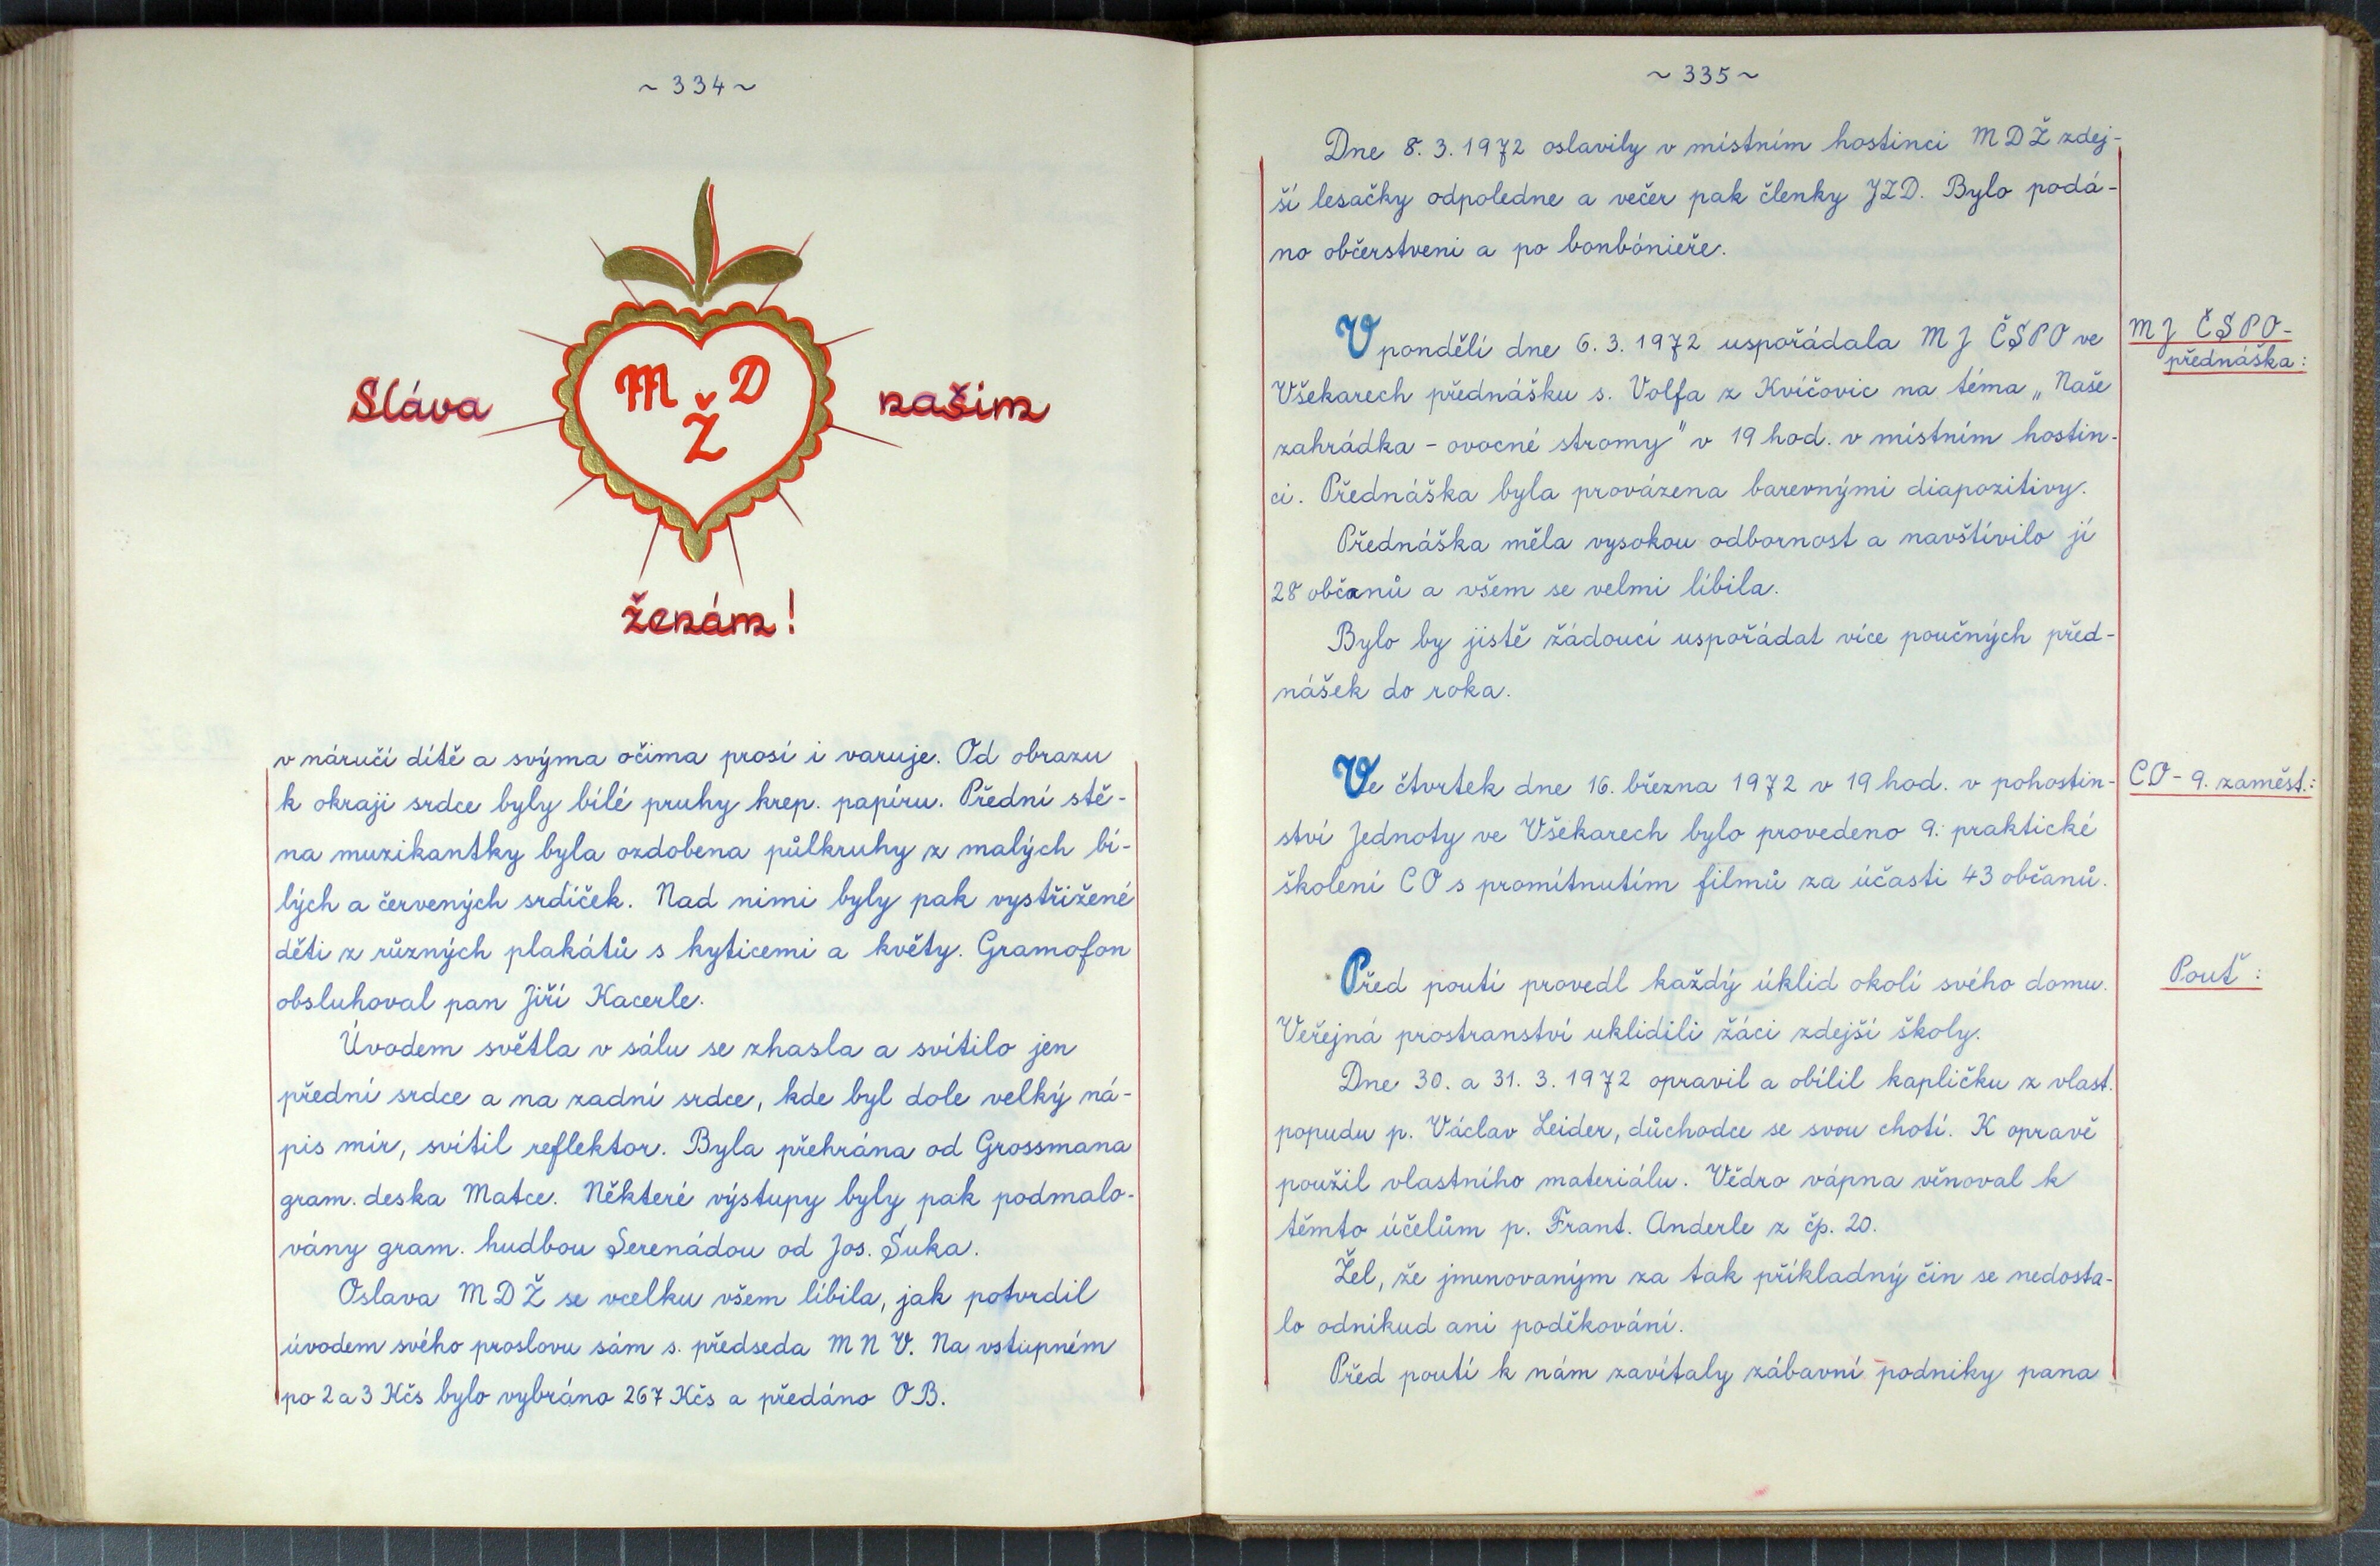 ~ 334 ~
Sláva
M D
Ž
našim
ženám!
v náručí dítě a svýma očima prosí i varuje. Od obrazu
k okraji srdce byly bílé pruhy krep. papíru. Přední stě-
na muzikantky byla ozdobena půlkruhy z malých bí-
lých a červených srdíček. Nad nimi byly pak vystřižené
děti z různých plakátů s kyticemi a květy. Gramofon
obsluhoval pan Jiří Kacerle.
Úvodem světla v sálu se zhasla a svítilo jen
přední srdce a na zadní srdce, kde byl dole velký ná-
pis mír, svítil reflektor. Byla přehrána od Grossmana
gram. deska Matce. Některé výstupy byly pak podmalo-
vány gram. hudbou Serenádou od Jos. Suka.
Oslava MDŽ se vcelku všem líbila, jak potvrdil
úvodem svého proslovu sám s. předseda MNV. Na vstupném
po 2 a 3 Kčs bylo vybráno 267 Kčs a předáno OB.
~ 335 ~
Dne 8. 3. 1972 oslavily v místním hostinci MDŽ zdej-
ší lesačky odpoledne a večer pak členky JZD. Bylo podá-
no občerstvení a po bonbónieře.
V pondělí dne 6. 3. 1972 uspořádala MJ ČSPO ve
Všekarech přednášku s. Volfa z Kvíčovic na téma „Naše
zahrádka - ovocné stromy" v 19 hod. v místním hostin-
ci. Přednáška byla provázena barevnými diapozitivy.
Přednáška měla vysokou odbornost a navštívilo jí
28 občanů a všem se velmi líbila.
Bylo by jistě žádoucí uspořádat více poučných před-
nášek do roka.
MJ ČSPO-
přednáška:
Ve čtvrtek dne 16. března 1972 v 19 hod. v pohostin-
ství Jednoty ve Všekarech bylo provedeno 9. praktické
školení CO s promítnutím filmů za účasti 43 občanů.
CO - 9. zaměst.:
Před poutí provedl každý úklid okolí svého domu.
Veřejná prostranství uklidili žáci zdejší školy.
Dne 30. a 31. 3. 1972 opravil a obílil kapličku z vlast.
popudu p. Václav Leider, důchodce se svou chotí. K opravě
použil vlastního materiálu. Vědro vápna věnoval k
těmto účelům p. Frant. Anderle z čp. 20.
Žel, že jmenovaným za tak příkladný čin se nedosta-
lo odnikud ani poděkování.
Před poutí k nám zavítaly zábavní podniky pana
Pouť: